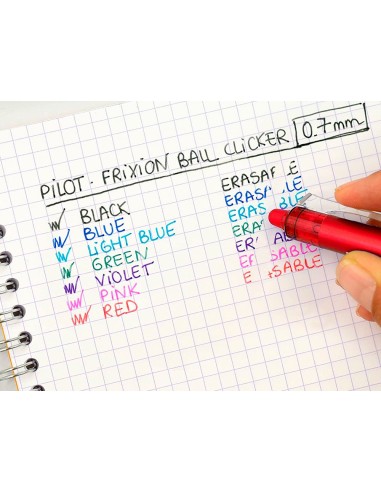 PILOT - FRIXION BALL CLICKER 0.7mm
BLACK
BLUE
LIGHT BLUE
GREEN
VIOLET
PINK
RED
ERASA LE
ERASA LE
ERAS BLE
ERA
ER ABLE
E SABLE
E SABLE